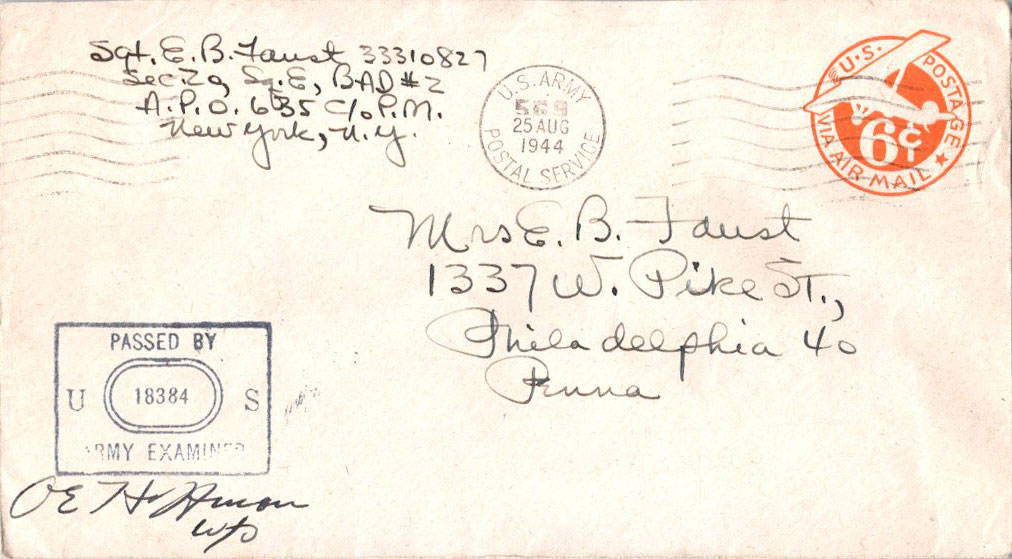 Sgt. E. B. Faust 33310827
Sec. 20, Sq. E, BAD #2
A.P.O. 635 c/o P.M.
New York, N.Y.
U.S. ARMY
569
25 AUG
1944
POSTAL SERVICE
U.S. POSTAGE
6¢
VIA AIR MAIL
Mrs E. B. Faust
1337 W. Pike St.,
Philadelphia 40
Penna
PASSED BY
U 18384 S
ARMY EXAMINER
O E Hoffman